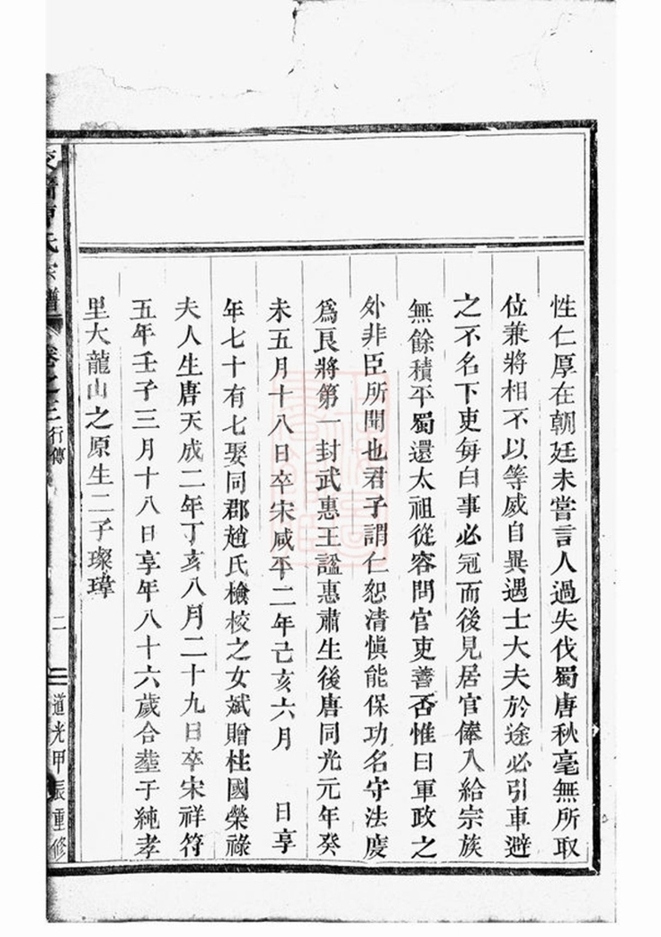 性仁厚在朝廷未嘗言人過失伐蜀唐秋毫無所取
位兼將相不以等威自異遇士大夫於途必引車避
之不名下吏每白事必冠而後見居官俸入給宗族
無餘積平蜀還太祖從容問官吏善否惟曰軍政之
外非臣所聞也君子謂仁恕清愼能保功名守法度
爲良將第一封武惠王諡惠肅生後唐同光元年癸
未五月十八日卒宋咸平二年己亥六月　日享
年七十有七娶同郡趙氏檢校之女斌贈柱國榮祿
夫人生唐天成二年丁亥八月二十九日卒宋祥符
五年壬子三月十八日享年八十六歲合塟子純孝
里大龍山之原生二子璨瑋
氏宗譜 卷之 行傳 二 道光甲辰重修